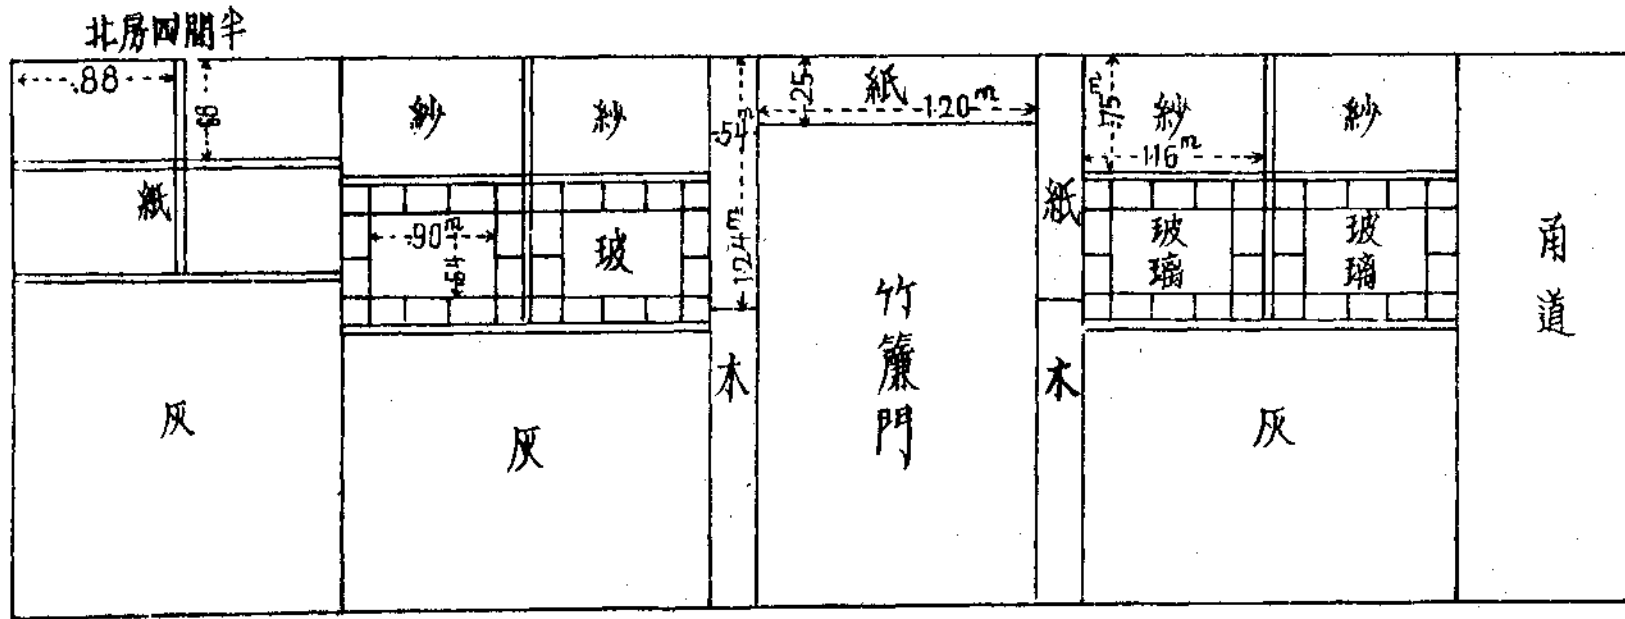 北房四間半
.88
68
紙
灰
紗
紗
.90m
.64
玻
灰
.54m
1.24m
木
.25
紙
1.20m
竹簾門
紙
木
.75m
紗
1.16m
紗
玻璃
玻璃
灰
甬道